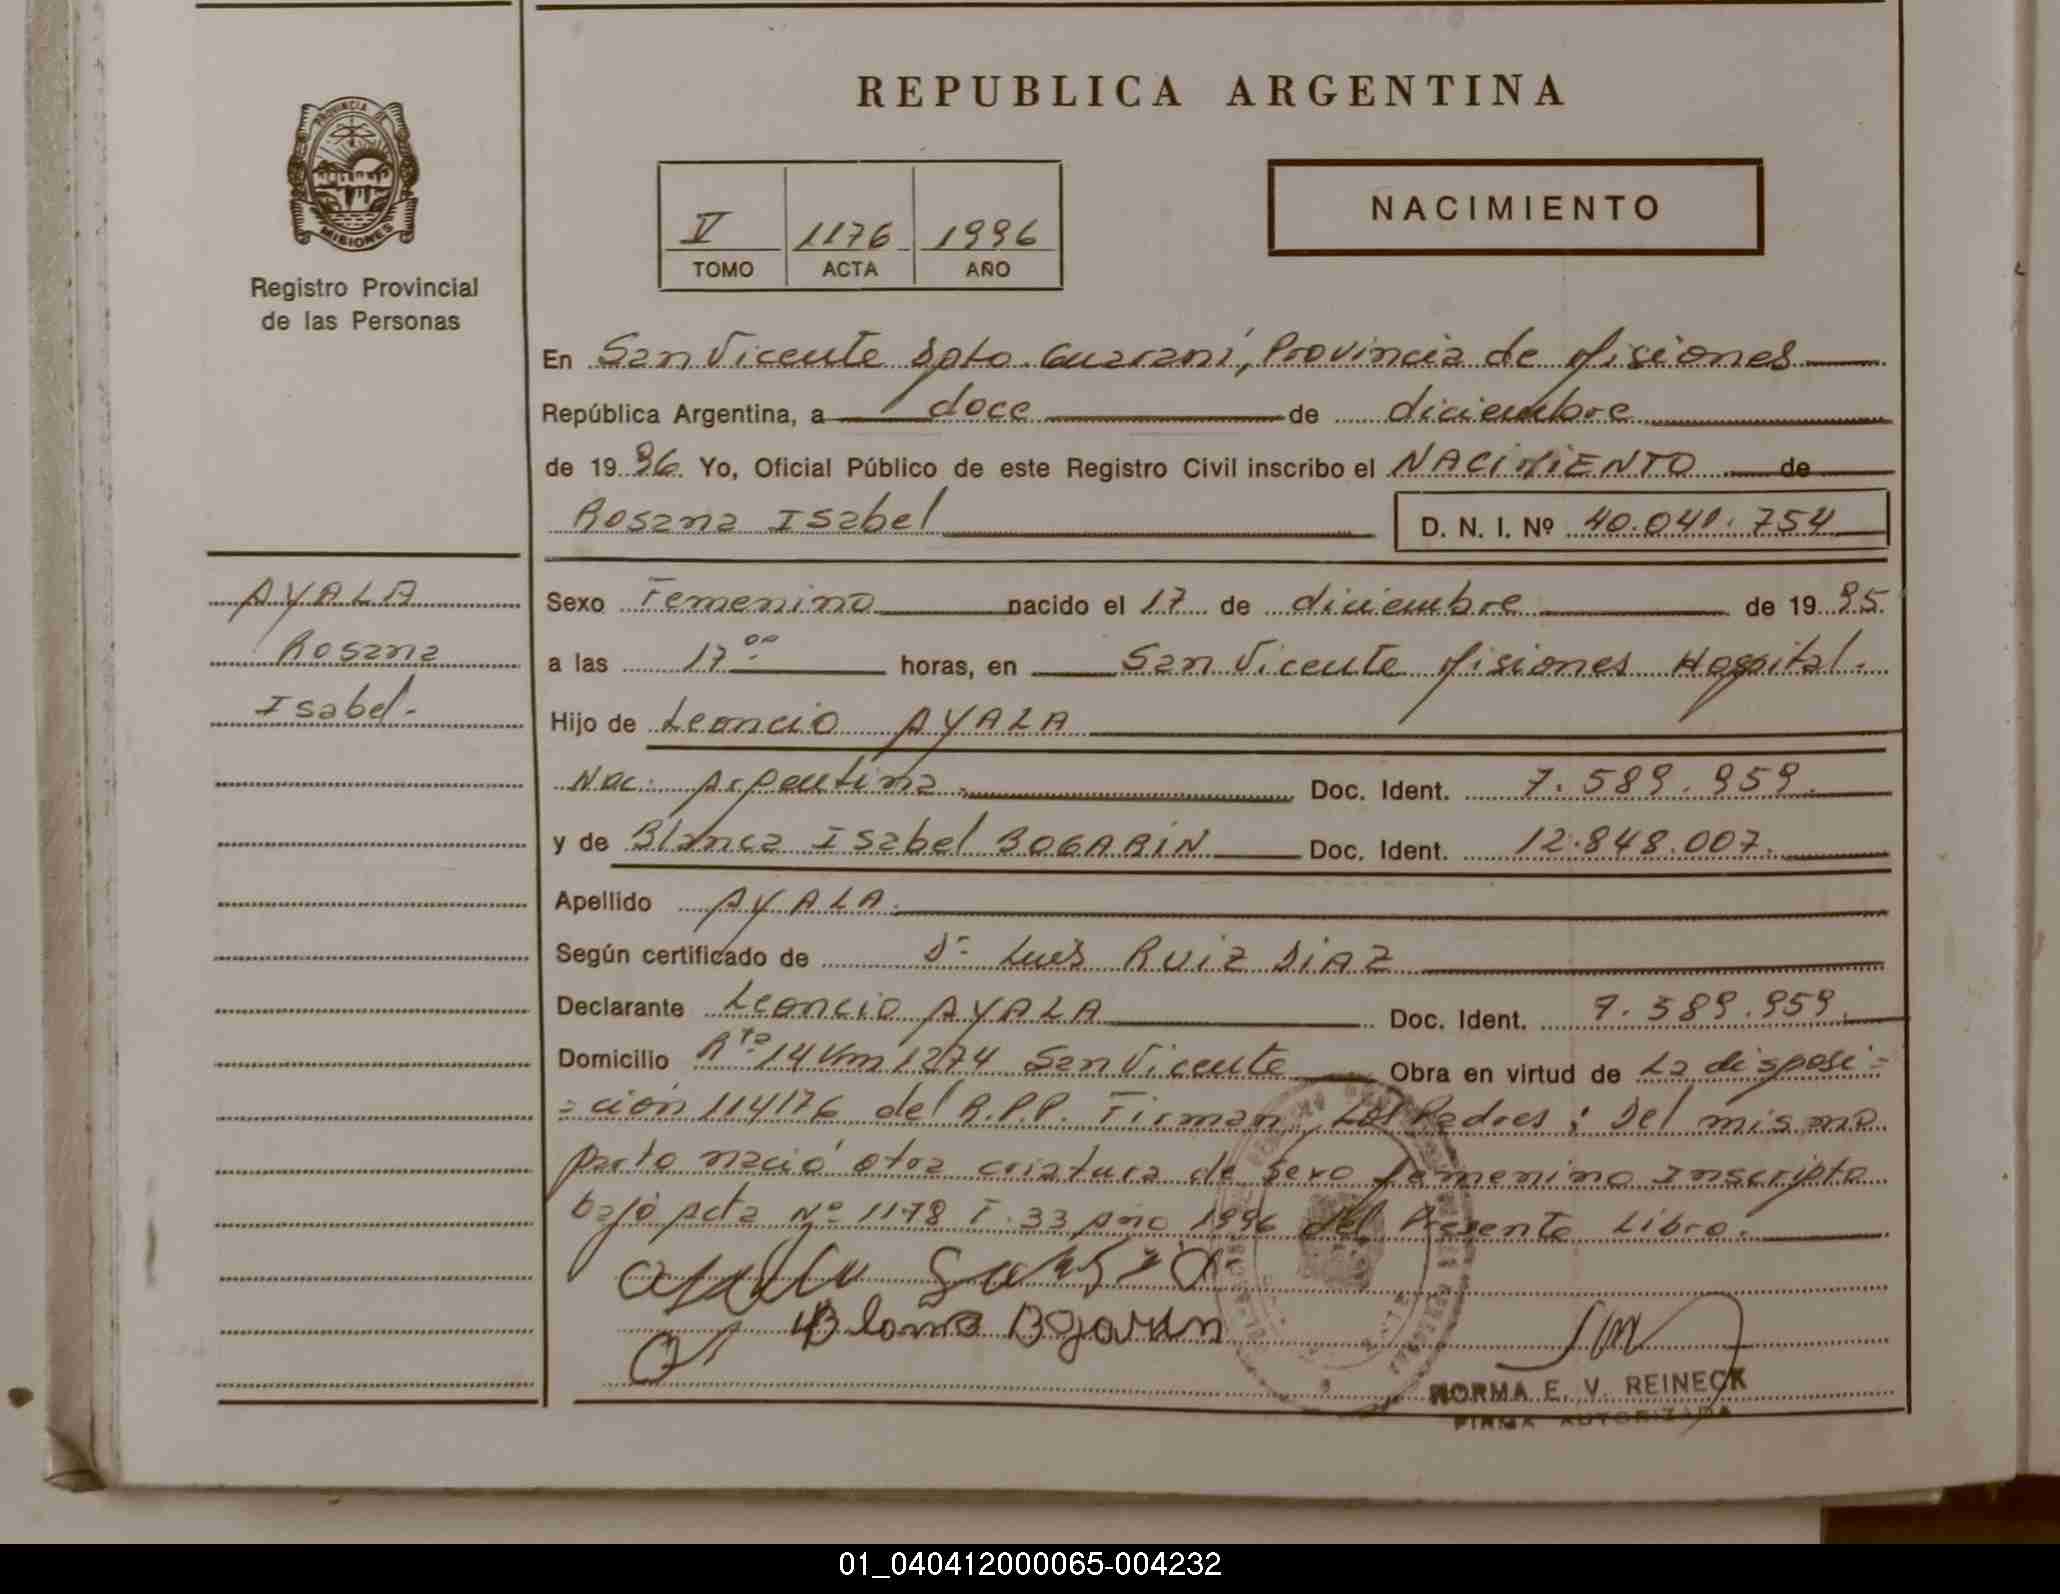 REPUBLICA ARGENTINA
PROVINCIA DE MISIONES
Registro Provincial
de las Personas
V 1176 1996
TOMO ACTA AÑO
NACIMIENTO
En San Vicente Dpto. Guaraní, Provincia de Misiones
República Argentina, a doce de diciembre
de 1996. Yo, Oficial Público de este Registro Civil inscribo el NACIMIENTO de
Rosana Isabel D. N. I. Nº 40.041.754
AYALA
Rosana
Isabel.-
Sexo Femenino nacido el 17 de diciembre de 1995.
a las 17 00 horas, en San Vicente Misiones Hospital.
Hijo de Leoncio AYALA
Nac. Argentina. Doc. Ident. 7.589.959.
y de Blanca Isabel BOGARIN Doc. Ident. 12.848.007.
Apellido AYALA.
Según certificado de Dr. Luis RUIZ DIAZ
Declarante Leoncio AYALA Doc. Ident. 7.589.959.
Domicilio Rta 14 Km 1274 San Vicente Obra en virtud de La disposi=
=ción 114/76 del R.P.P. Firman Los Padres: Del mismo
parto nació otra criatura de sexo femenino Inscripta
bajo Acta Nº 1178 T. 33 Año 1996 del Presente Libro.
Bogarin
NORMA E. V. REINECK
FIRMA AUTORIZADA
01_040412000065-004232